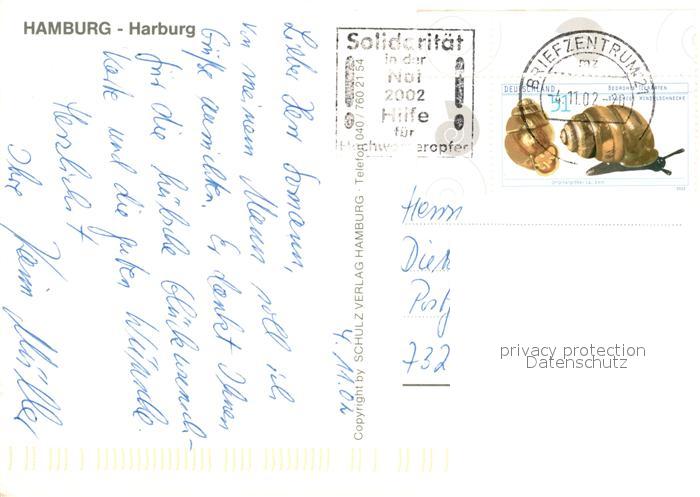 HAMBURG - Harburg
Lieber Herr
von meinem Mann soll ich
Grüße ausrichten. Er dankt Ihnen
für die hübsche Glückwunsch-
karte und die guten Wünsche.
Herzlichst
Ihre Karin Müller
4.11.02
Copyright by SCHULZ VERLAG HAMBURG · Telefon 040 / 760 21 54
Solidarität
in der
Not
2002
Hilfe
für
Hochwasseropfer
BRIEFZENTRUM 21
mz
11.02
DEUTSCHLAND
51
BEDROHTE TIERARTEN
WINDELSCHNECKE
2002
Herrn
Postf
732
privacy protection
Datenschutz